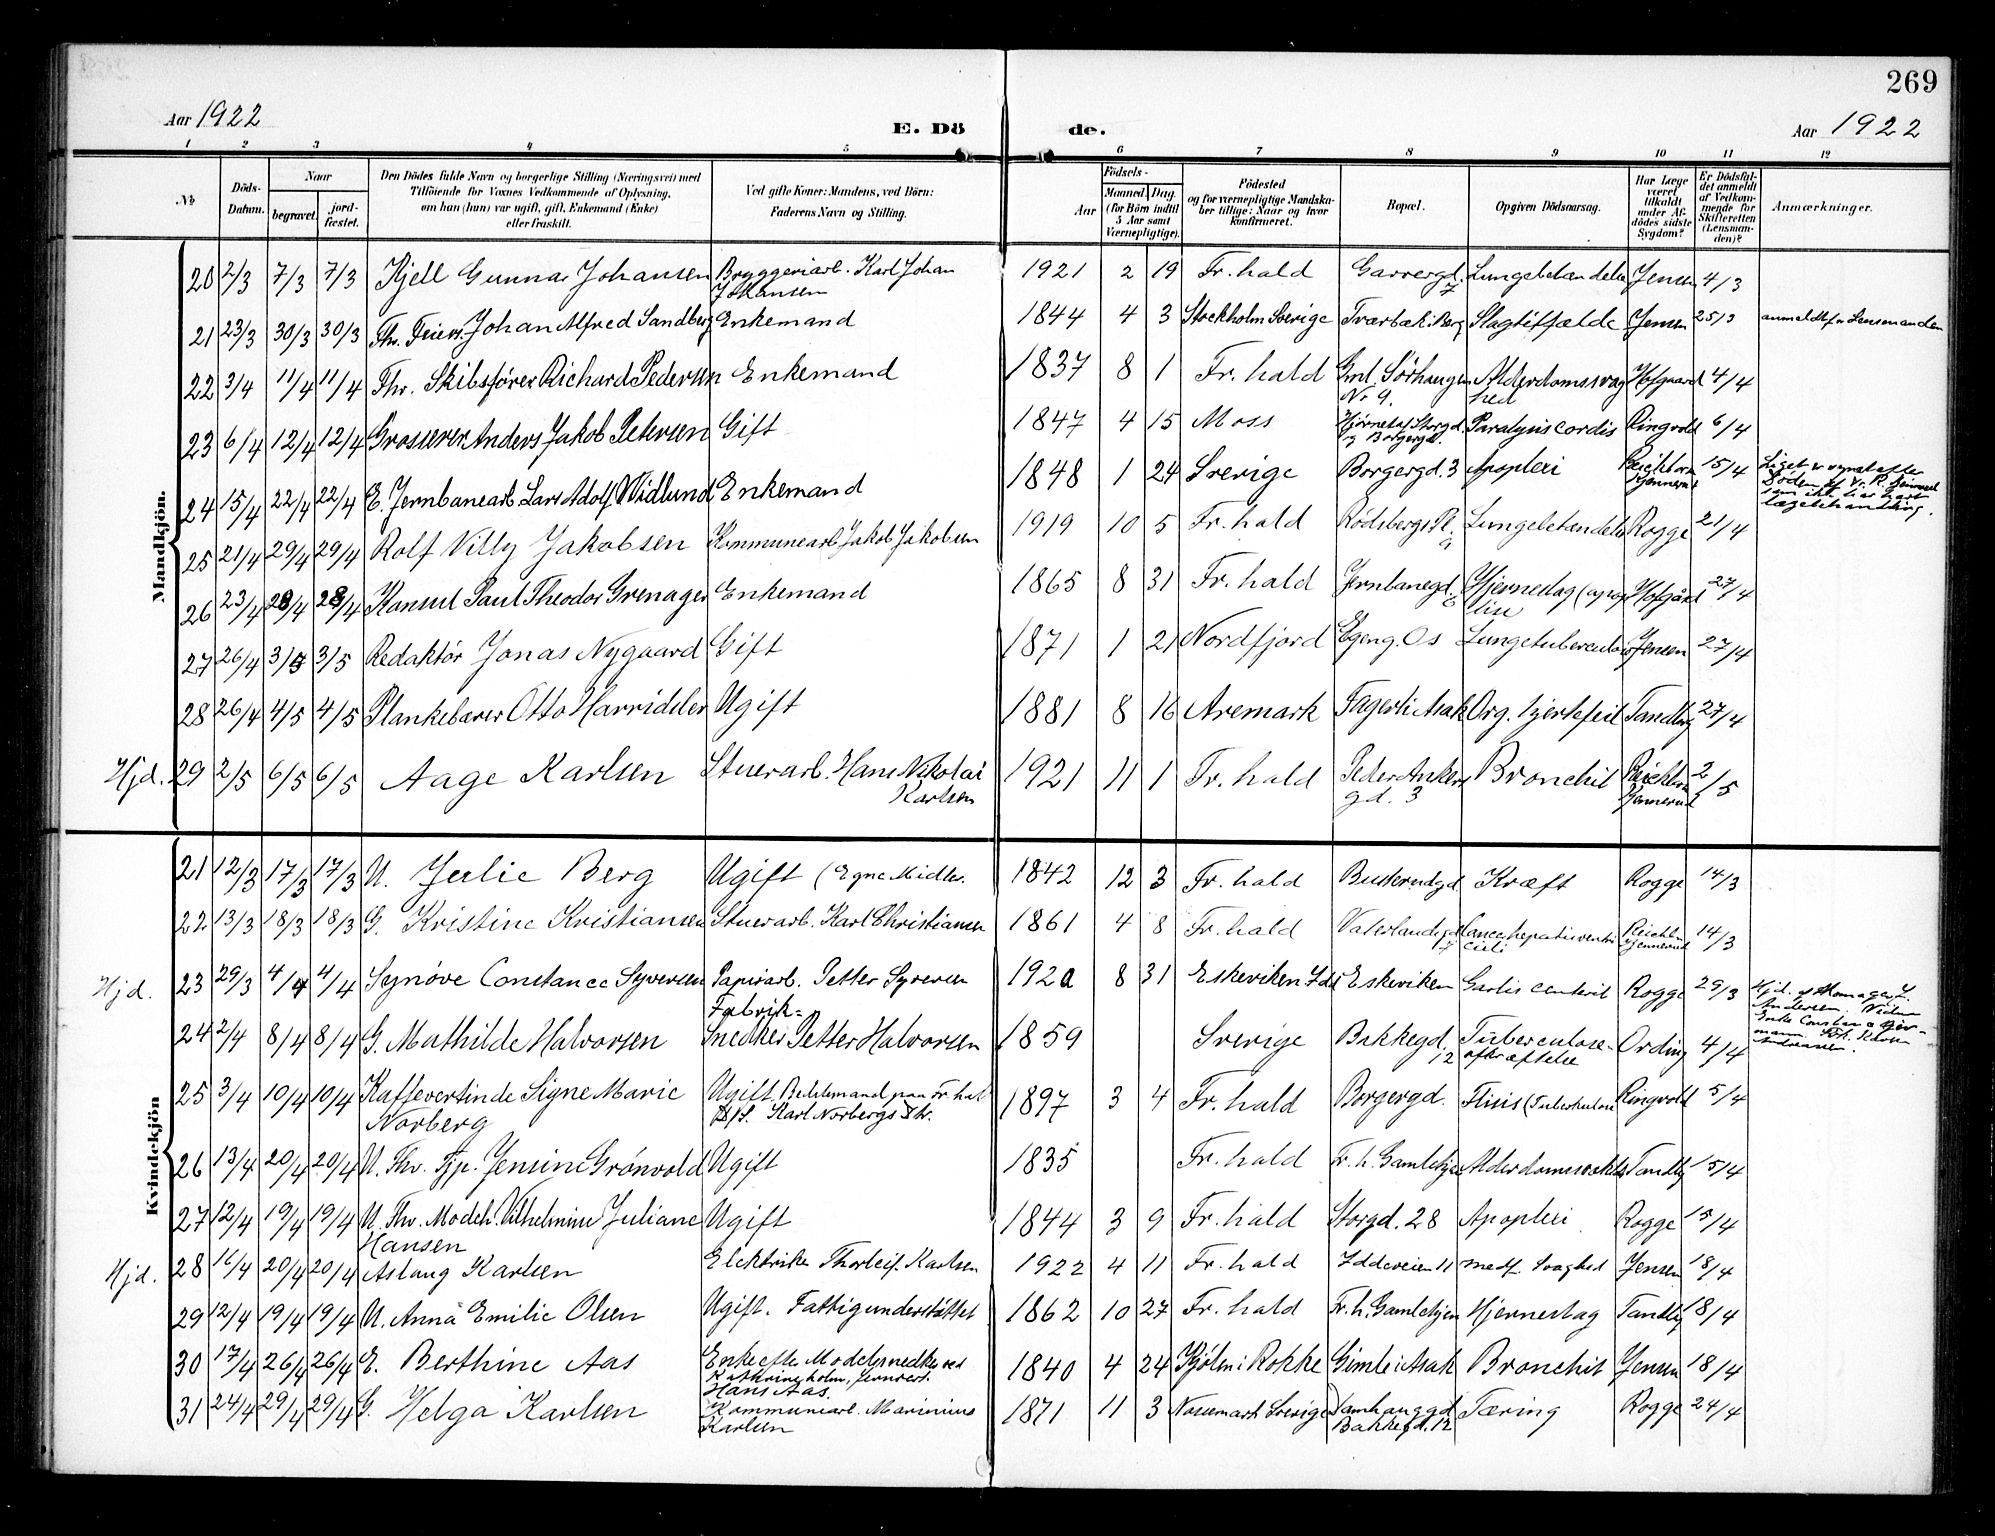 269
Aar 1922
E. Dö de.
Aar 1922
1 2 3 4 5 6 7 8 9 10 11 12
No
Döds-Datum.
Naar
begravet.
jord-fæstet.
Den Dödes fulde Navn og borgerlige Stilling (Næringsvei) med
Tilföiende for Voxnes Vedkommende af Oplysning,
om han (hun) var ugift, gift, Enkemand (Enke)
eller fraskilt.
Ved gifte Koner: Mandens, ved Börn:
Faderens Navn og Stilling.
Födsels-
Aar
Maaned. Dag.
(for Börn indtil
5 Aar samt
Værnepligtige).
Födested
og for værnepligtige Mandska-
ber tillige: Naar og hvor
konfirmeret.
Bopæl.
Opgiven Dödsaarsag.
Har Læge
været
tilkaldt
under Af-
dödes sidste
Sygdom?
Er Dödsfal-
det anmeldt
af Vedkom-
mende for
Skifteretten
(Lensman-
den)?
Anmærkninger.
Mandkjön.
20 2/3 7/3 7/3 Kjell Gunnar Johansen Bryggeriarb. Karl Johan Johansen 1921 2 19 Fr. hald Garvergd. 7 Lungebetændelse Jensen 4/3
21 23/3 30/3 30/3 Fhv. Johan Alfred Sandberg Enkemand 1844 4 3 Stockholm Sverige Tværbæk i Berg Slagtilfælde Jensen 25/3 anmeldt f. Lensmanden
22 3/4 11/4 11/4 Fhv. Skibsfører Richard Pedersen Enkemand 1837 8 1 Fr. hald Gml. Sørhaugen Nr 9. Alderdomssvaghed Hofgaard 4/4
23 6/4 12/4 12/4 Grosserer Anders Jakob Petersen Gift 1847 4 15 Moss Hjørnet af Storgd. og Borgergd. Paralysis cordis Ringvold 6/4
24 15/4 22/4 22/4 E. Jernbanearb. Lars Adolf Widlund Enkemand 1848 1 24 Sverige Borgergd. 3 Apoplexi Reichborn Kjennerud 15/4 Liget er synet efter Døden af dr. R. Kjennerud som ikke har havt lægebehandling.
25 21/4 29/4 29/4 Rolf Villy Jakobsen Kommunearb. Jakob Jakobsen 1919 10 5 Fr. hald Rødsbergs Pl. 9 Lungebetændelse Rogge 21/4
26 23/4 28/4 28/4 Konsul Paul Theodor Grenager Enkemand 1865 8 31 Fr. hald Jernbanegd. 6 Hjerneslag (apoplexi Hofgård 27/4
27 26/4 3/5 3/5 Redaktør Jonas Nygaard Gift 1871 1 21 Nordfjord Egeng. Os Lungetuberculose Jensen 27/4
28 26/4 4/5 4/5 Plankebærer Otto Harridslev Ugift 1881 8 16 Aremark Fagerli Asak Org. hjertefeil Tandberg 27/4
Hjd. 29 2/5 6/5 6/5 Aage Karlsen Stuerarb. Hans Nikolai Karlsen 1921 11 1 Fr. hald Peder Ankersgd. 3 Bronchit Reichborn Kjennerud 2/5
Kvindekjön
21 12/3 17/3 17/3 U. Julie Berg Ugift (Egne Midler. 1842 12 3 Fr. hald Buskerudgd Kræft Rogge 14/3
22 13/3 18/3 18/3 G. Kristine Kristiansen Stuerarb. Karl Christiansen 1861 4 8 Fr. hald Vaterlandsgd Cancer hepatis ventriculi Reichb. Kjennerud 14/3
Hjd. 23 29/3 4/4 4/4 Synøve Constance Syversen Papirarb. Petter Syversen 1920 8 31 Eskeviken Idd Eskeviken Gastis enterit Rogge 29/3
24 2/4 8/4 8/4 G. Mathilde Halvorsen Fabrik= Snedker Petter Halvorsen 1859 Sverige Bakkegd. 12 Tuberculose= afkræftelse Ording 4/4
25 3/4 10/4 10/4 Kaffevertinde Signe Marie Norberg Ugift Karl Norbergs Dtr. 1897 3 4 Fr. hald Borgergd. Ftisis (Tuberkulose Ringvold 5/4
26 13/4 20/4 20/4 U. Fhv. Tjp. Jensine Grønvold Ugift 1835 Fr. hald Fr. h. Gamlehjem Alderdomssvækkelse Tandbg 15/4
27 12/4 19/4 19/4 U. Fhv. Modeh. Vilhelmine Juliane Hansen Ugift 1844 3 9 Fr. hald Storgd. 28 Apoplexi Rogge 15/4
Hjd. 28 16/4 20/4 20/4 Aslaug Karlsen Elektriker Thorleif Karlsen 1922 4 11 Fr. hald Iddeveien 11 medf. Svaghed Jensen 18/4
29 12/4 19/4 19/4 U. Anna Emilie Olsen Ugift. Fattigunderstøttet 1862 10 27 Fr. hald Fr. h. Gamlehjem Hjerneslag Tandbg 18/4
30 17/4 26/4 26/4 E. Berthine Aas Enke efter Modelsnedker ved Kathrineholm Jernverk. Hans Aas. 1840 4 24 Kjølen i Rokke Gimle i Asak Bronchit Jensen 18/4
31 24/4 29/4 29/4 G. Helga Karlsen Kommunearb. Marinius Karlsen 1871 11 3 Nosemark Sverige Damhauggd Bakkegd. 12 Tæring Rogge 24/4